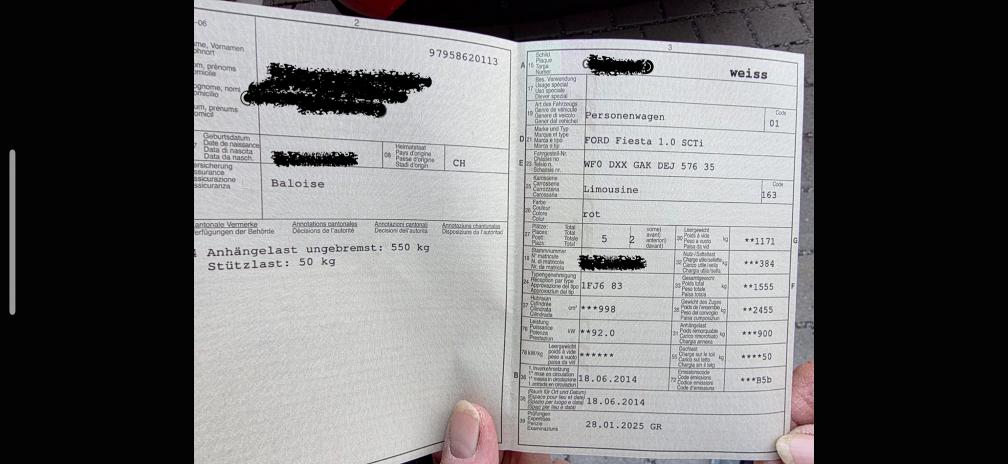 -06
2
me, Vornamen
ohnort
97958620113
om, prénoms
omicile
ognome, nomi
omicilio
um, prenums
omicil
Geburtsdatum
Date de naissance
Data di nascita
Data da nasch.
08
Heimatstaat
Pays d'origine
Passe d'origine
Stadi d'origin
CH
ersicherung
ssurance
ssicurazione
ssicuranza
Baloise
antonale Vermerke
erfügungen der Behörde
Annotations cantonales
Décisions de l'autorité
Annotazioni cantonali
Decisioni dell'autorità
Annotaziuns chantunalas
Disposiziuns da l'autoritad
Anhängelast ungebremst: 550 kg
Stützlast: 50 kg
3
A
15
Schild
Plaque
Targa
Numer
weiss
17
Bes. Verwendung
Usage spécial
Uso speciale
Diever spezial
19
Art des Fahrzeugs
Genre de véhicule
Genere di veicolo
Gener dal vehichel
Personenwagen
Code
01
D
21
Marke und Typ
Marque et type
Marca e tipo
Marca e tip
FORD Fiesta 1.0 SCTi
E
23
Fahrgestell-Nr.
Châssis no
Telaio n.
Schassis nr.
WF0 DXX GAK DEJ 576 35
25
Karosserie
Carrosserie
Carrozzeria
Carossaria
Limousine
Code
163
26
Farbe
Couleur
Colore
Colur
rot
27
Plätze: Total
Places: Total
Posti: Totale
Plazs: Total
5
2
vorne)
avant)
anteriori)
davant)
30
Leergewicht
Poids à vide
Peso a vuoto
Paisa da vid
kg
**1171
G
18
Stammnummer
N° matricule
N. di matricola
Nr. da matricla
32
Nutz-/Sattellast
Charge utile/sellette
Carico utile/sella
Chargia utila/sella
kg
***384
24
Typengenehmigung
Réception par type
Approvazione del tipo
Approvaziun dal tip
1FJ6 83
33
Gesamtgewicht
Poids total
Peso totale
Paisa totala
kg
**1555
F
37
Hubraum
Cylindrée
Cilindrata
Cilindrada
cm³
***998
35
Gewicht des Zuges
Poids de l'ensemble
Peso del convoglio
Paisa cumposiziun
kg
**2455
76
Leistung
Puissance
Potenza
Prestaziun
kW
**92.0
31
Anhängelast
Poids remorquable
Carico rimorchiato
Chargia annexa
kg
***900
78
kW/kg
Leergewicht
poids à vide
peso a vuoto
paisa da vid
******
55
Dachlast
Charge sur le toit
Carico sul tetto
Chargia sin il tetg
kg
****50
B
36
1. Inverkehrsetzung
1re mise en circulation
1a messa in circolazione
1. entrada en circulaziun
18.06.2014
72
Emissionscode
Code émissions
Codice emissioni
Code d'emissiuns
***B5b
38
(Raum für Ort und Datum)
(Espace pour lieu et date)
(Spazio per luogo e data)
(Spazi per lieu e data)
18.06.2014
39
Prüfungen
Expertises
Perizie
Examinaziuns
28.01.2025 GR